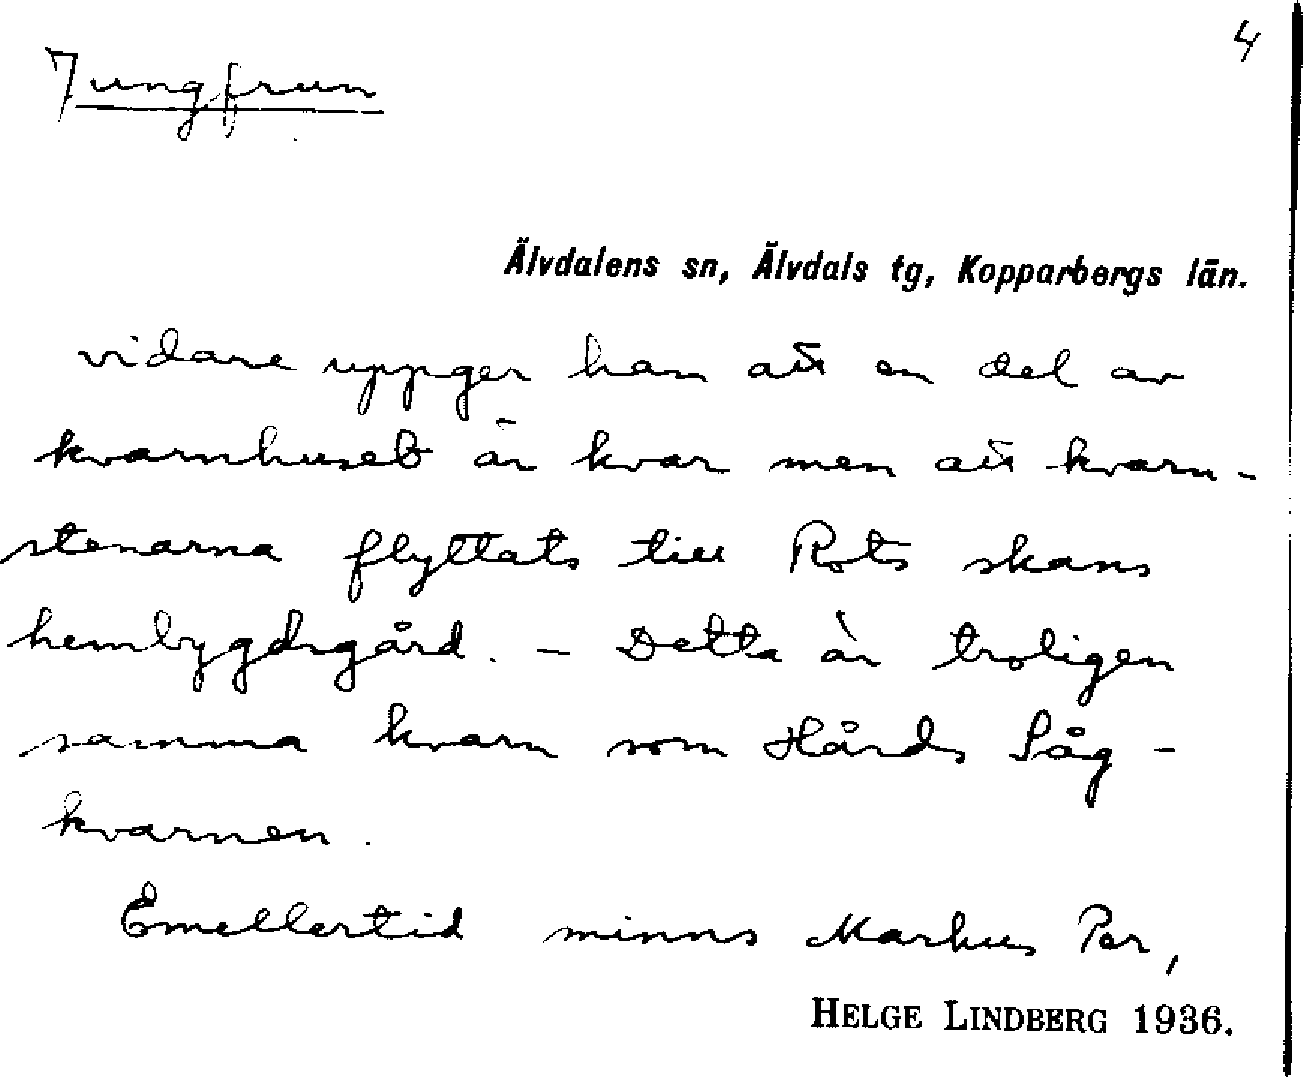 4
Jungfrun
Älvdalens sn, Älvdals tg, Kopparbergs län.
vidare uppger han att en del av
kvarnhuset är kvar men att kvarn-
stenarna flyttats till Rots skans
hembygdsgård. - Detta är troligen
samma kvarn som Hårds Såg-
kvarnen.
Emellertid minns Markus Per,
HELGE LINDBERG 1936.